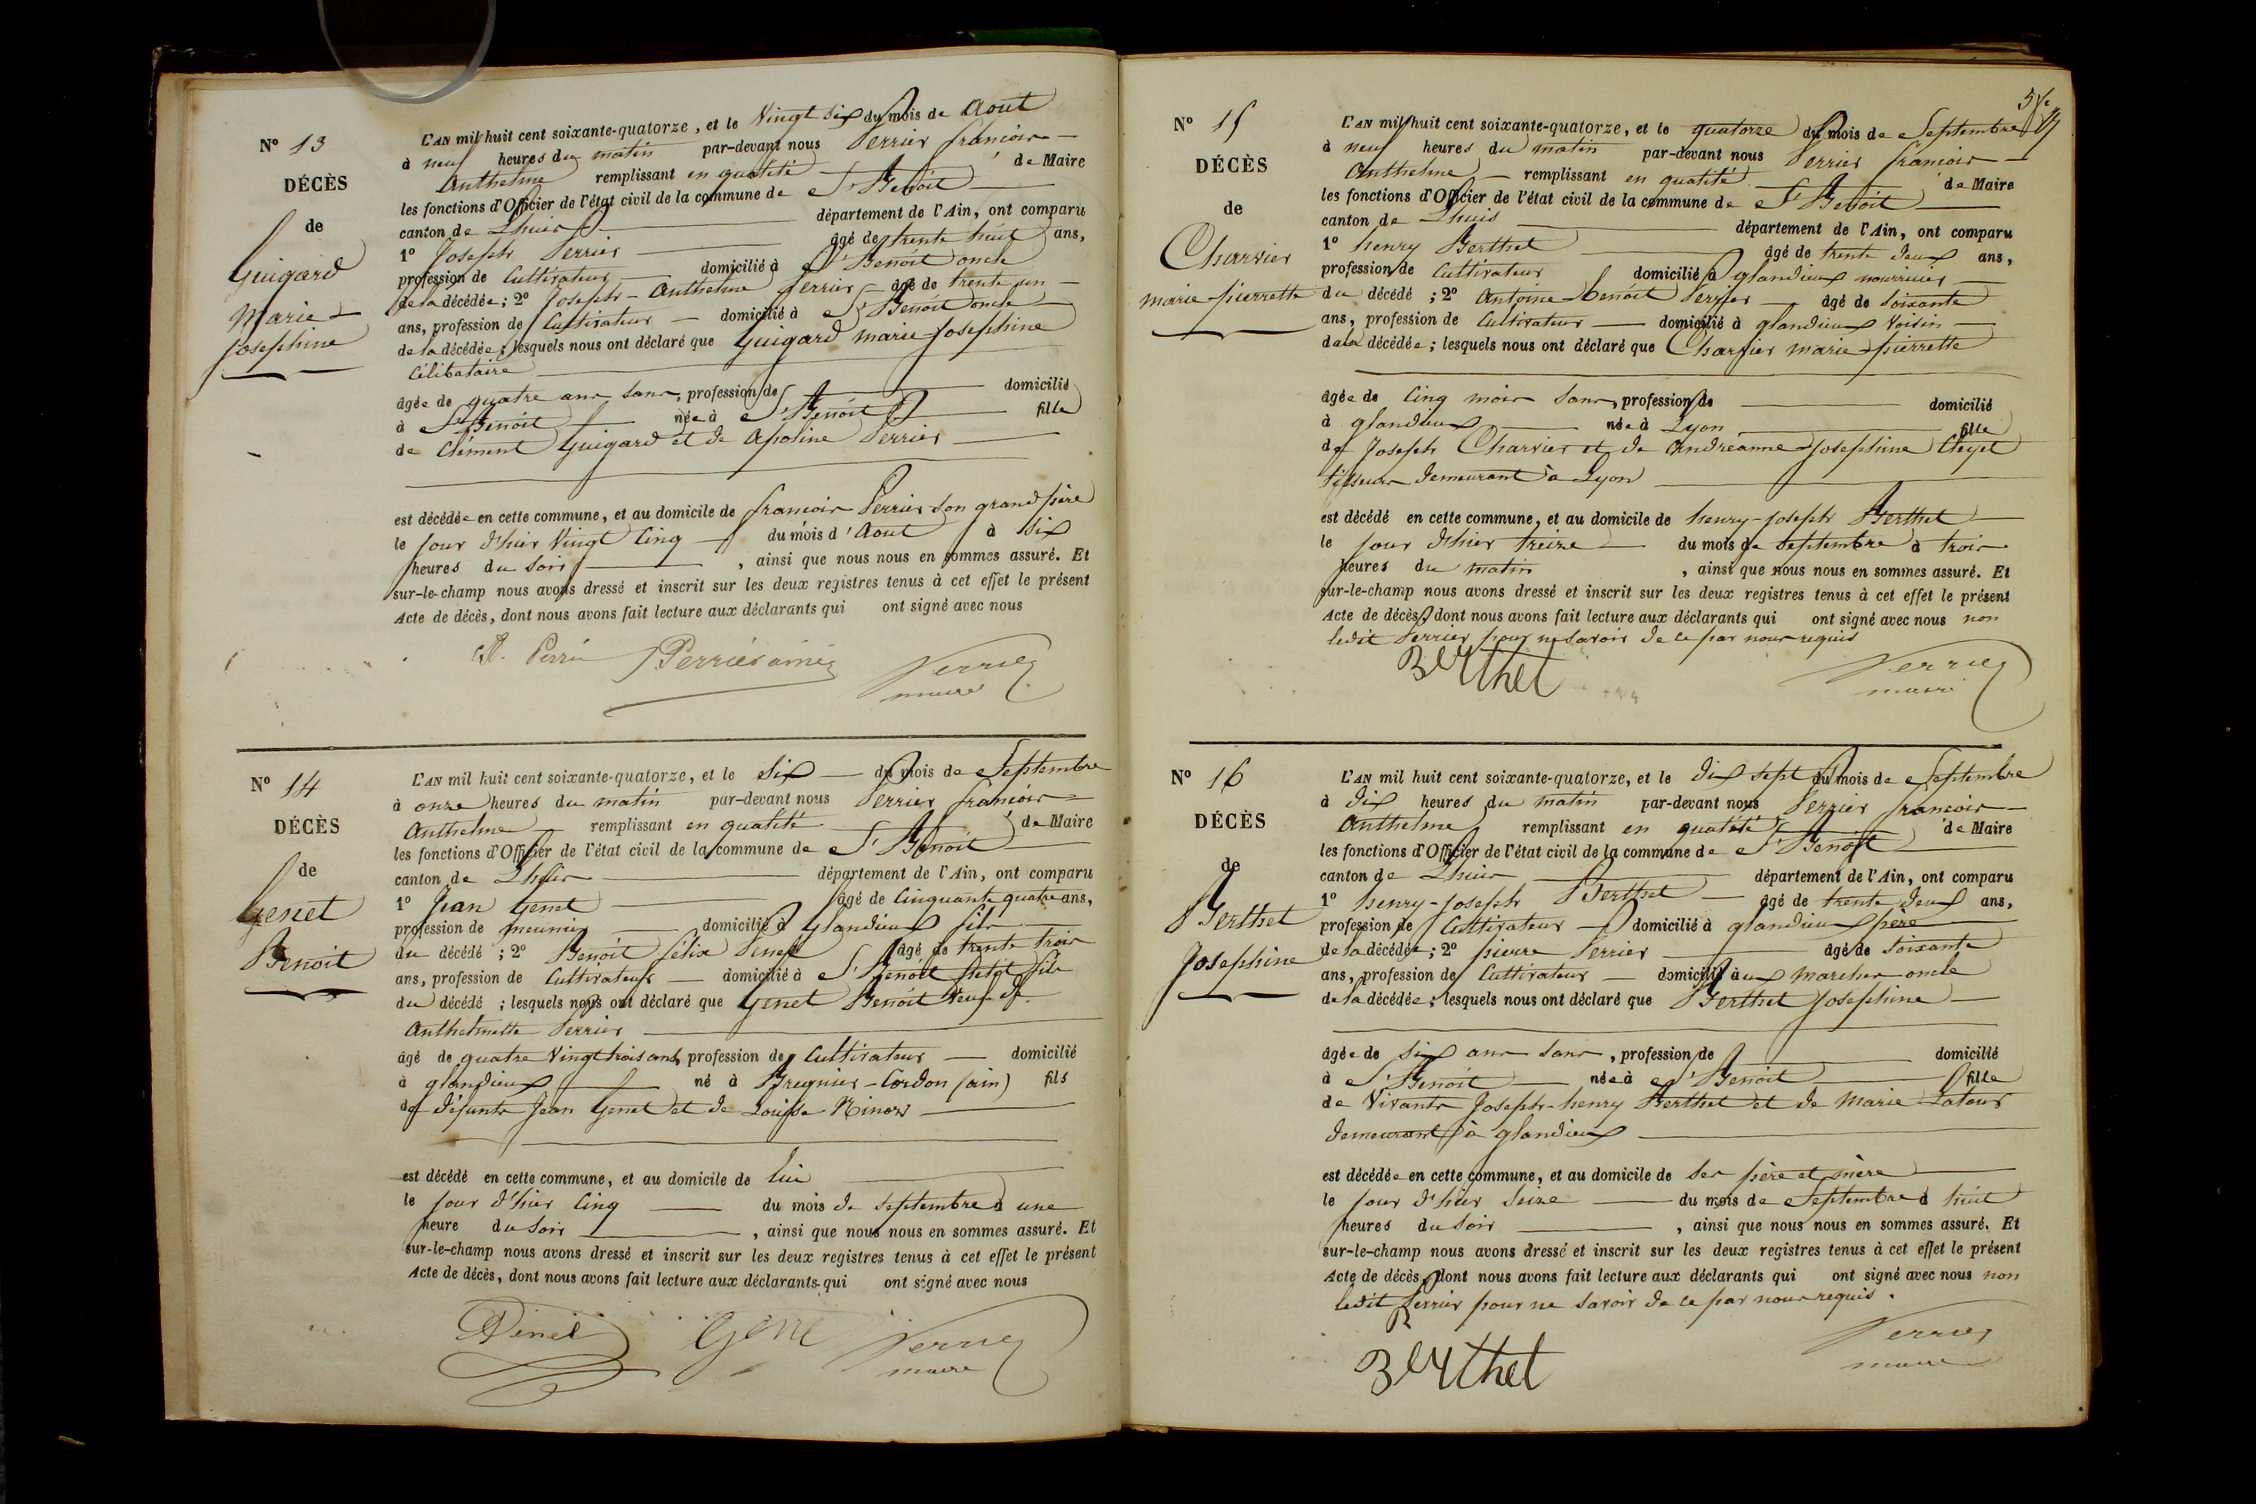 Nº 13
DÉCÈS
de
Guigard
Marie-
Josephine
L'AN mil huit cent soixante-quatorze, et le Vingt Six du mois de Aout
à neuf heures du matin par-devant nous Perrier françois
Anthelme remplissant en qualité de Maire
les fonctions d'Officier de l'état civil de la commune de St Benoit
canton de Lhuis département de l'Ain, ont comparu
1º Joseph Perrier âgé de trente huit ans,
profession de Cultivateur domicilié à St Benoit oncle
de la décédée; 2º Joseph-Anthelme Perrier âgé de trente un
ans, profession de Cultivateur domicilié à St Benoit oncle
de la décédée; lesquels nous ont déclaré que Guigard marie Josephine
Célibataire
âgée de quatre ans sans, profession de domicilié
à St Benoit née à St Benoit fille
de Clément Guigard et de Apoline Perrier
est décédée en cette commune, et au domicile de françois Perrier son grand père
le jour d'hier Vingt Cinq du mois d'Aout à six
heures du soir, ainsi que nous nous en sommes assuré. Et
sur-le-champ nous avons dressé et inscrit sur les deux registres tenus à cet effet le présent
Acte de décès, dont nous avons fait lecture aux déclarants qui ont signé avec nous
Perrier ainé Perrier
maire
Nº 14
DÉCÈS
de
Genet
Benoit
L'AN mil huit cent soixante-quatorze, et le Six du mois de Septembre
à onze heures du matin par-devant nous Perrier françois
Anthelme remplissant en qualité de Maire
les fonctions d'Officier de l'état civil de la commune de St Benoit
canton de Lhuis département de l'Ain, ont comparu
1º Jean Genet âgé de Cinquante quatre ans,
profession de meunier domicilié à Glandieux fils
du décédé; 2º Benoit félix Pinet âgé de trente trois
ans, profession de Cultivateur domicilié à St Benoit petit fils
du décédé; lesquels nous ont déclaré que Genet Benoit Veuf de
Anthelmette Perrier
âgé de quatre Vingt trois ans, profession de Cultivateur domicilié
à glandieux né à Bregnier-Cordon (ain) fils
de défunts Jean Genet et de Louise
est décédé en cette commune, et au domicile de lui
le jour d'hier Cinq du mois de septembre à une
heure du soir, ainsi que nous nous en sommes assuré. Et
sur-le-champ nous avons dressé et inscrit sur les deux registres tenus à cet effet le présent
Acte de décès, dont nous avons fait lecture aux déclarants qui ont signé avec nous
Pinet Genet Perrier
maire
Nº 15
DÉCÈS
de
Charvier
marie-pierrette
L'AN mil huit cent soixante-quatorze, et le quatorze du mois de Septembre
à neuf heures du matin par-devant nous Perrier françois
Anthelme remplissant en qualité de Maire
les fonctions d'Officier de l'état civil de la commune de St Benoit
canton de Lhuis département de l'Ain, ont comparu
1º henry Berthet âgé de trente deux ans,
profession de Cultivateur domicilié à glandieux nourricier
du décédé; 2º Antoine-benoit Perrier âgé de Soixante
ans, profession de Cultivateur domicilié à glandieux Voisin
de la décédée; lesquels nous ont déclaré que Charvier marie-pierrette
âgée de Cinq mois sans, profession de domicilié
à glandieux née à Lyon fille
de Joseph Charvier et de Andreanne-Josephine Cleyet
tisseurs demeurant à Lyon
est décédé en cette commune, et au domicile de henry-joseph Berthet
le jour d'hier treize du mois de septembre à trois
heures du matin, ainsi que nous nous en sommes assuré. Et
sur-le-champ nous avons dressé et inscrit sur les deux registres tenus à cet effet le présent
Acte de décès, dont nous avons fait lecture aux déclarants qui ont signé avec nous non
ledit Perrier pour ne savoir de ce par nous requis
Berthet Perrier
maire
Nº 16
DÉCÈS
de
Berthet
Josephine
L'AN mil huit cent soixante-quatorze, et le dix sept du mois de Septembre
à dix heures du matin par-devant nous Perrier françois
Anthelme remplissant en qualité de Maire
les fonctions d'Officier de l'état civil de la commune de St Benoit
canton de Lhuis département de l'Ain, ont comparu
1º henry-joseph Berthet âgé de trente deux ans,
profession de Cultivateur domicilié à glandieux père
de la décédée; 2º pierre Perrier âgé de soixante
ans, profession de Cultivateur domicilié à aux marches oncle
de la décédée; lesquels nous ont déclaré que Berthet Josephine
âgée de six ans sans, profession de domicilié
à St Benoit née à St Benoit fille
de Vivants Joseph-henry Berthet et de Marie Latour
demeurant à glandieux
est décédée en cette commune, et au domicile de ses père et mère
le jour d'hier Seize du mois de Septembre à huit
heures du soir, ainsi que nous nous en sommes assuré. Et
sur-le-champ nous avons dressé et inscrit sur les deux registres tenus à cet effet le présent
Acte de décès, dont nous avons fait lecture aux déclarants qui ont signé avec nous non
ledit Perrier pour ne savoir de ce par nous requis.
Berthet Perrier
maire